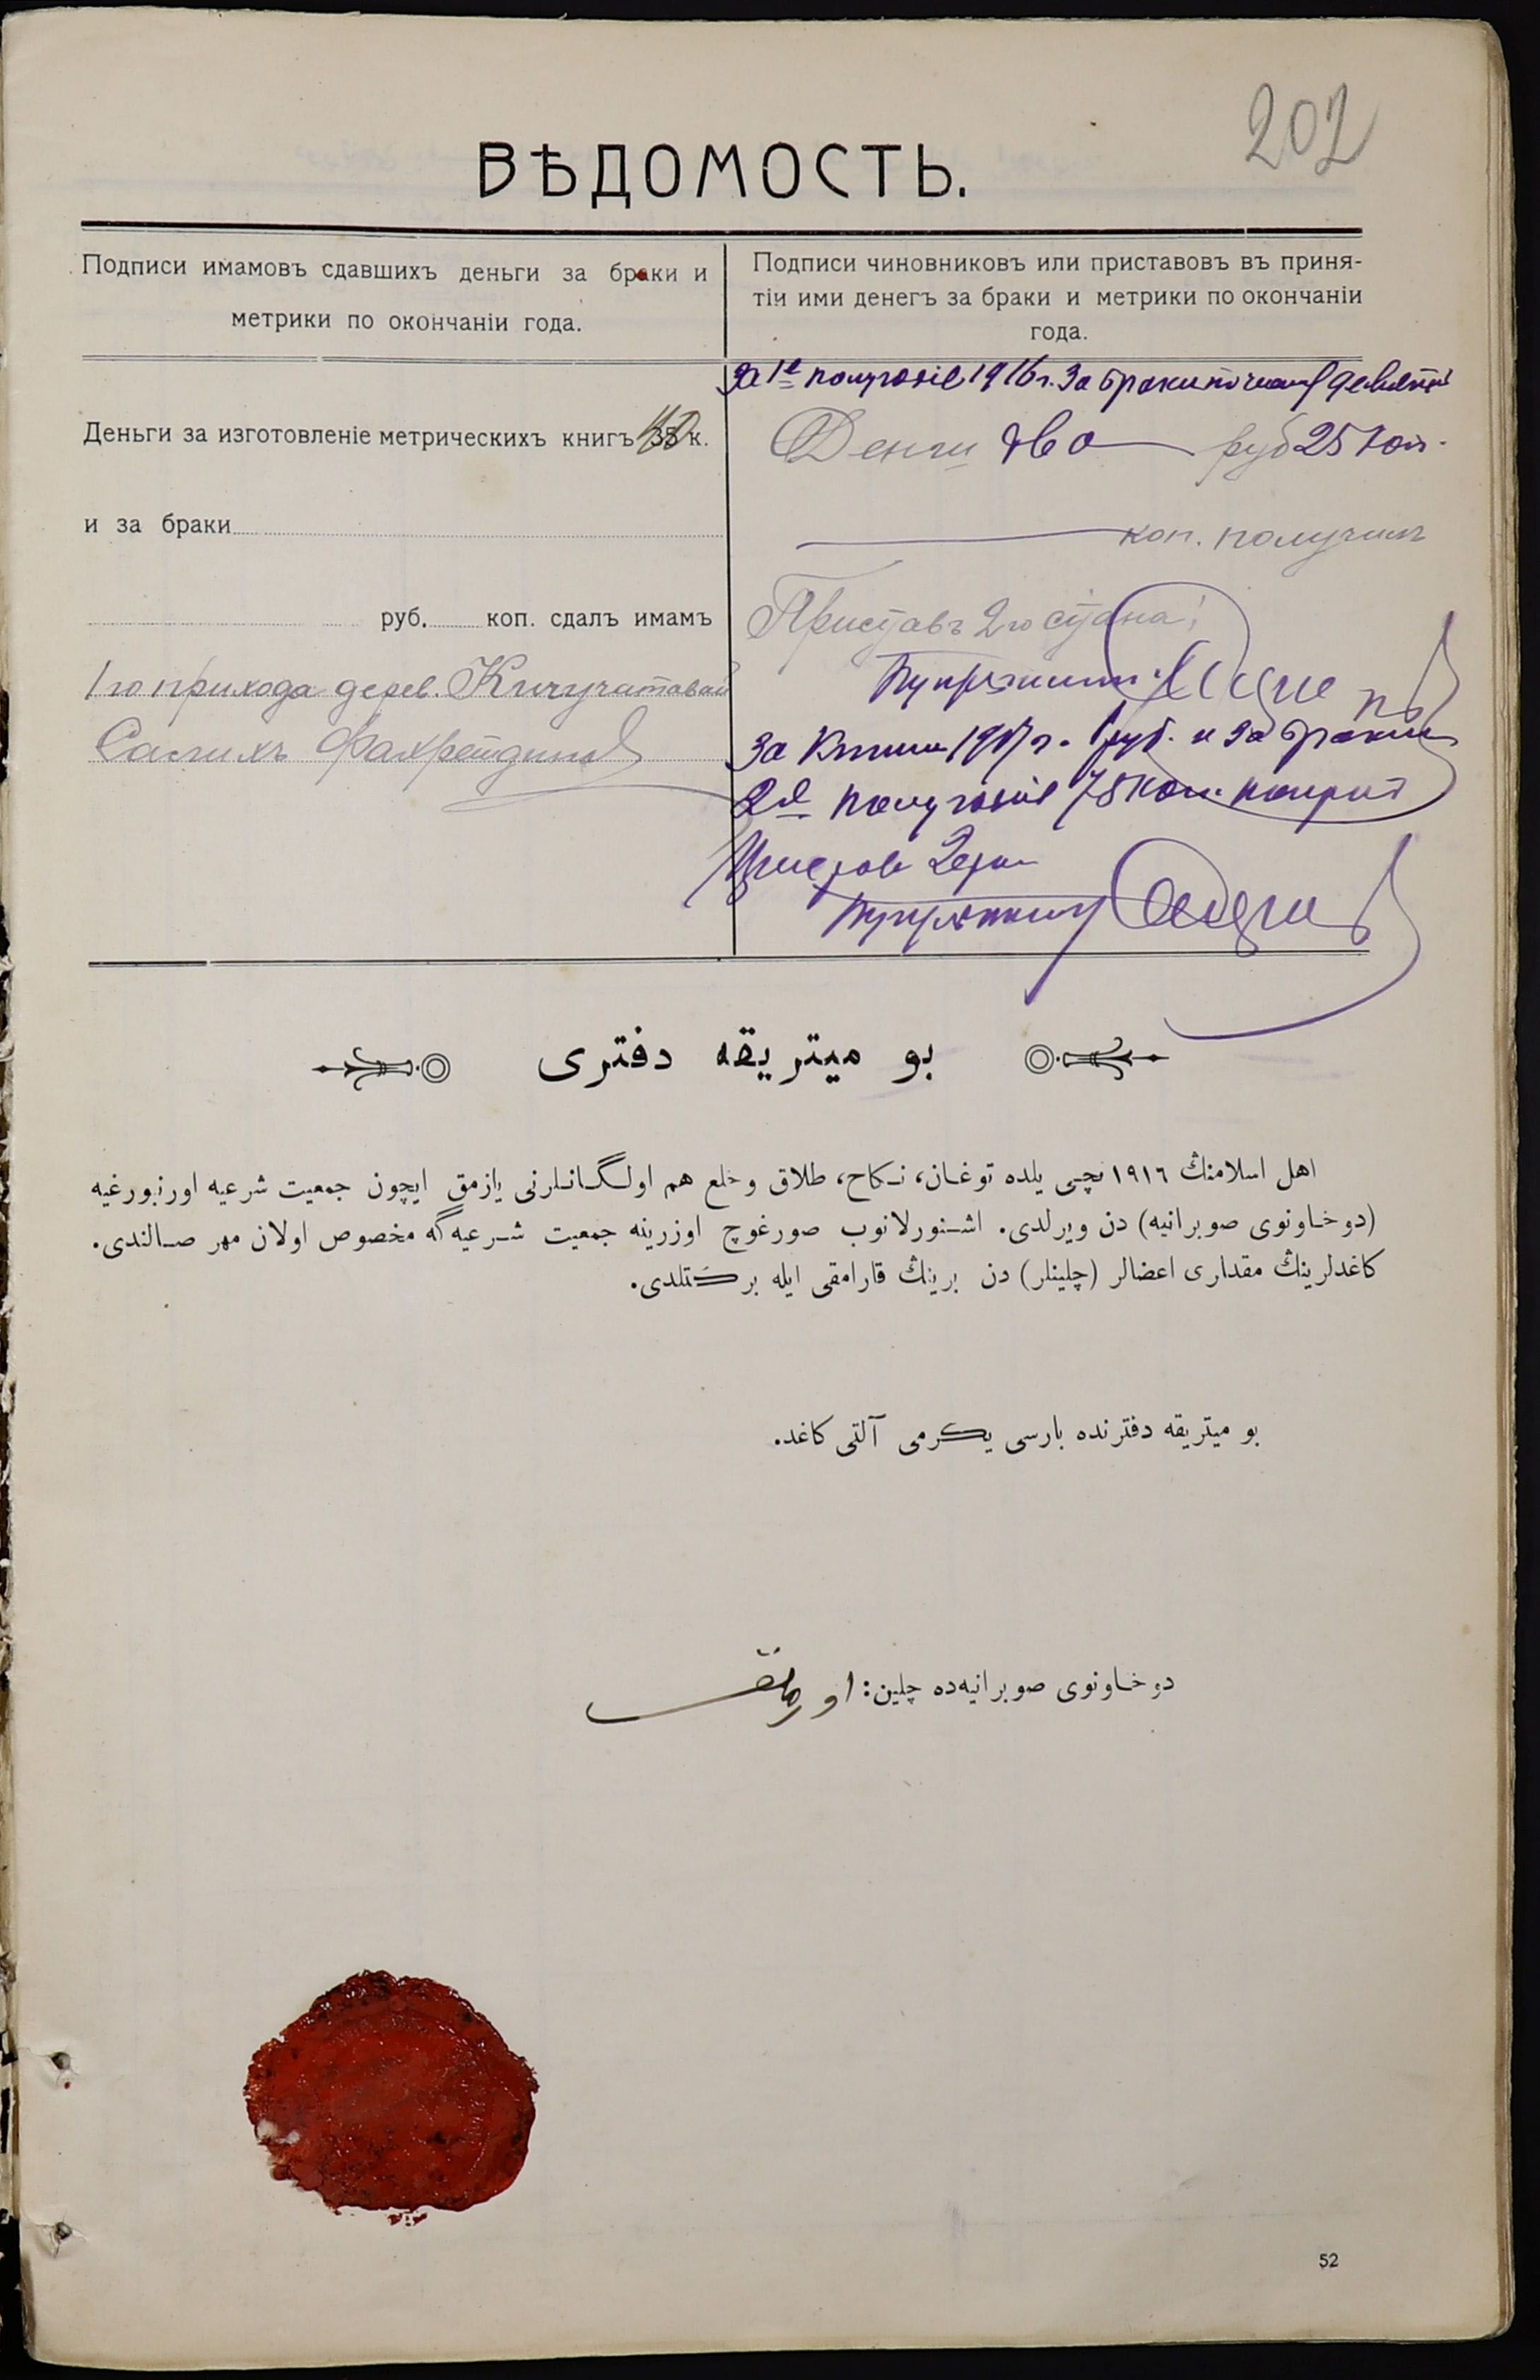 202
ВѢДОМОСТЬ.
Подписи имамовъ сдавшихъ деньги за браки и
метрики по окончаніи года.
Подписи чиновниковъ или приставовъ въ приня-
тіи ими денегъ за браки и метрики по окончаніи
года.
Деньги за изготовленіе метрическихъ книгъ 40 к.
и за браки
руб. коп. сдалъ имамъ
1го прихода дерев. Кичучатовай
Салихъ Фахрейдинов
За 1е полугодіе 1916 г. За браки
Денги два руб 25 коп.
коп. получилъ
Приставъ 2го стана:
За книги 1917 г. 1 руб. и за браки
2е полугодіе 75 коп.
بو ميتريقه دفترى
اهل اسلامنڭ ١٩١٦ نچى يلده توغان، نكاح، طلاق و خلع هم اولگانلرنى يازمق ايچون جمعيت شرعيه اورنبورغيه
(دوخاونوى صوبرانيه) دن ويرلدى. اشنورلانوب صورغوچ اوزرينه جمعيت شرعيه گه مخصوص اولان مهر صالندى.
كاغدلرينڭ مقدارى اعضالر (چلينلر) دن برينڭ قارامقى ايله بركتلدى.
بو ميتريقه دفترنده بارسى يكرمى آلتى كاغد.
دوخاونوى صوبرانيه‌ده چلين:
52